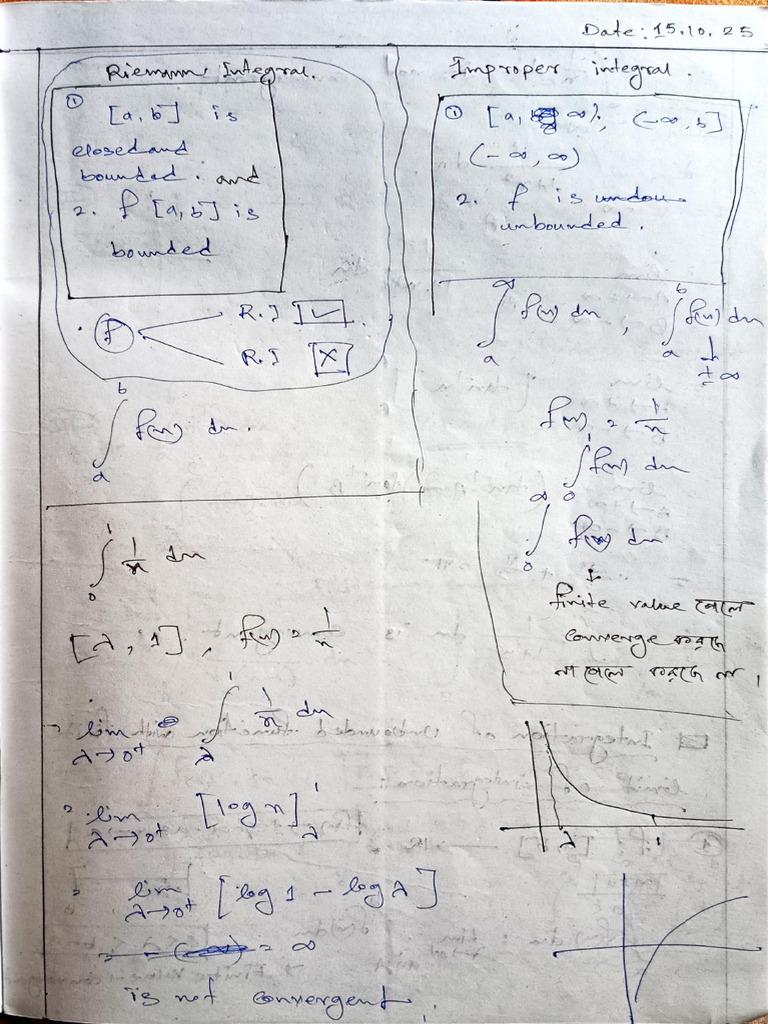 Date: 15.10.25
Riemann Integral.
① [a, b] is
closed and
bounded. and
2. f [a, b] is
bounded
f
R.I ✓
R.I ×
∫_a^b f(x) dx.
Improper integral.
① [a, ∞), (-∞, b]
(-∞, ∞)
2. f is
unbounded.
∫_a^∞ f(x) dx, ∫_a^b f(x) dx
↓
± ∞
f(x) = 1/x
∫_0^1 f(x) dx
∫_0^∞ f(x) dx
↓
finite value পেলে
converge করছে
না পেলে করছে না।
∫_0^1 1/x dx
[λ, 1], f(x) = 1/x
= lim_{λ→0+} ∫_λ^1 1/x dx
= lim_{λ→0+} [log x]_λ^1
= lim_{λ→0+} [log 1 - log λ]
= ∞
is not convergent.
λ 1